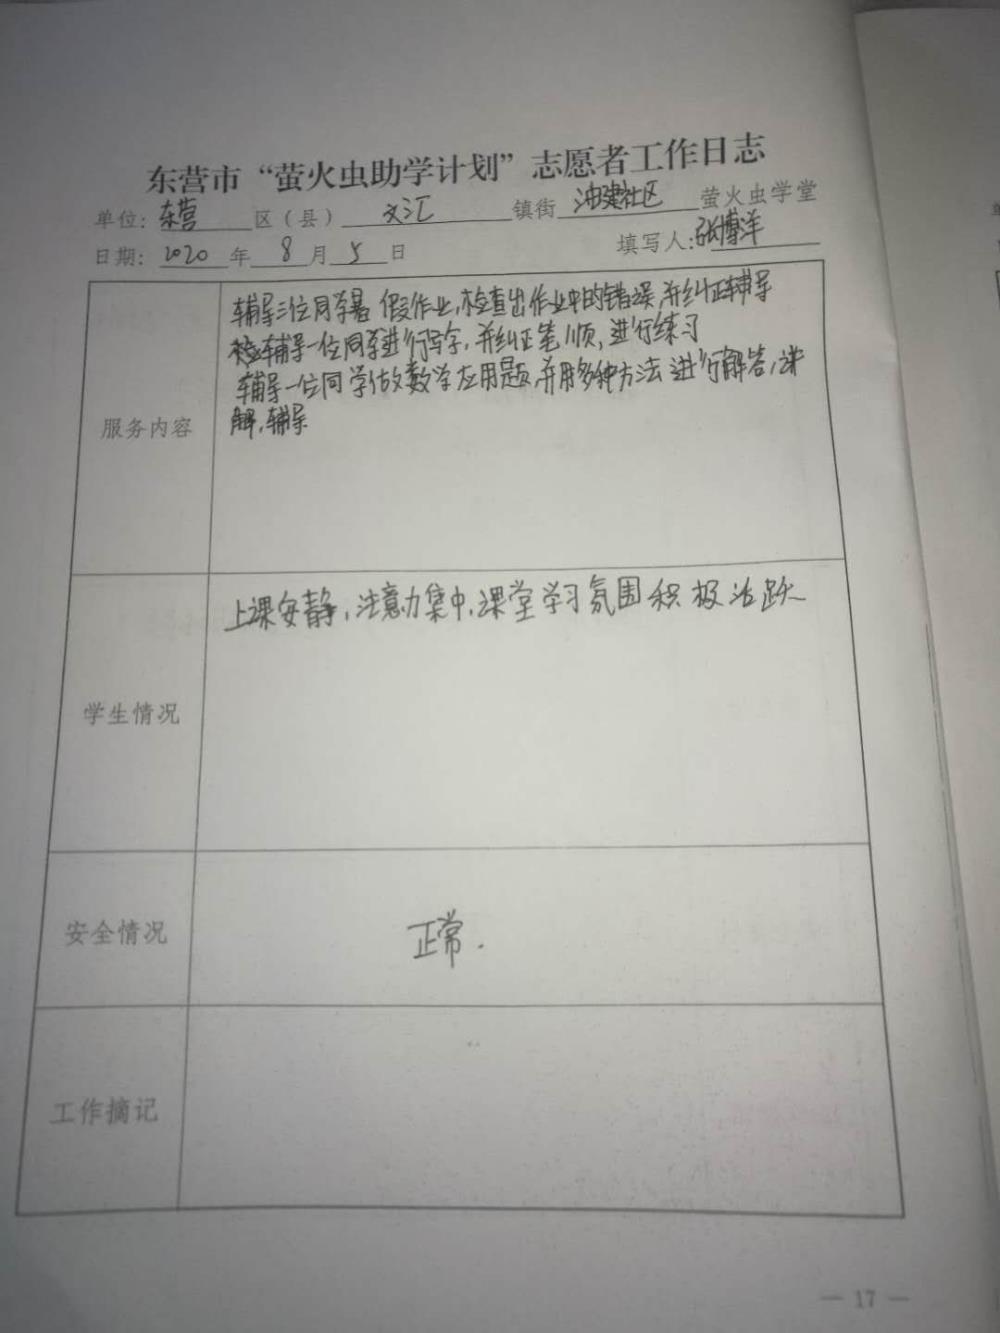 东营市“萤火虫助学计划”志愿者工作日志
单位：东营区（县）文汇镇街油建社区萤火虫学堂
日期：2020年8月5日 填写人：张博洋
服务内容
辅导三位同学暑假作业，检查出作业中的错误，并纠正辅导
辅导一位同学进行写字，并纠正笔顺，进行练习
辅导一位同学做数学应用题，并用多种方法进行解答，讲
解，辅导
学生情况
上课安静，注意力集中，课堂学习氛围积极活跃
安全情况
正常.
工作摘记
— 17 —